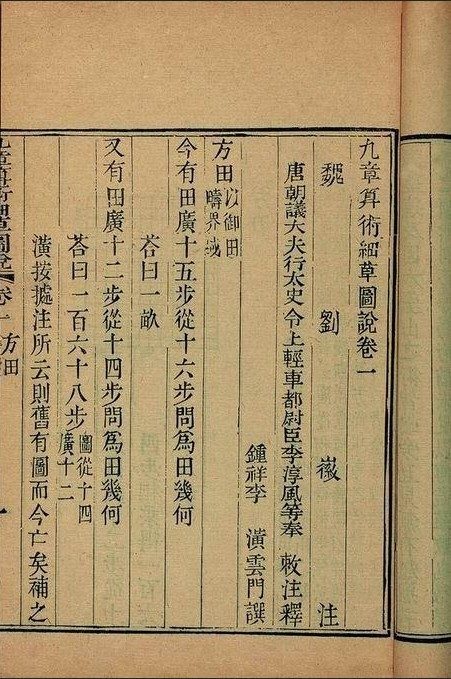 九章算術細草圖說卷一
魏劉徽注
唐朝議大夫行太史令上輕車都尉臣李淳風等奉敕注釋
鍾祥李潢雲門譔
方田以御田疇界域
今有田廣十五步從十六步問爲田幾何
荅曰一畝
又有田廣十二步從十四步問爲田幾何
荅曰一百六十八步圖從十四廣十二
潢按據注所云則舊有圖而今亡矣補之
九章算術細草圖說 卷一 方田